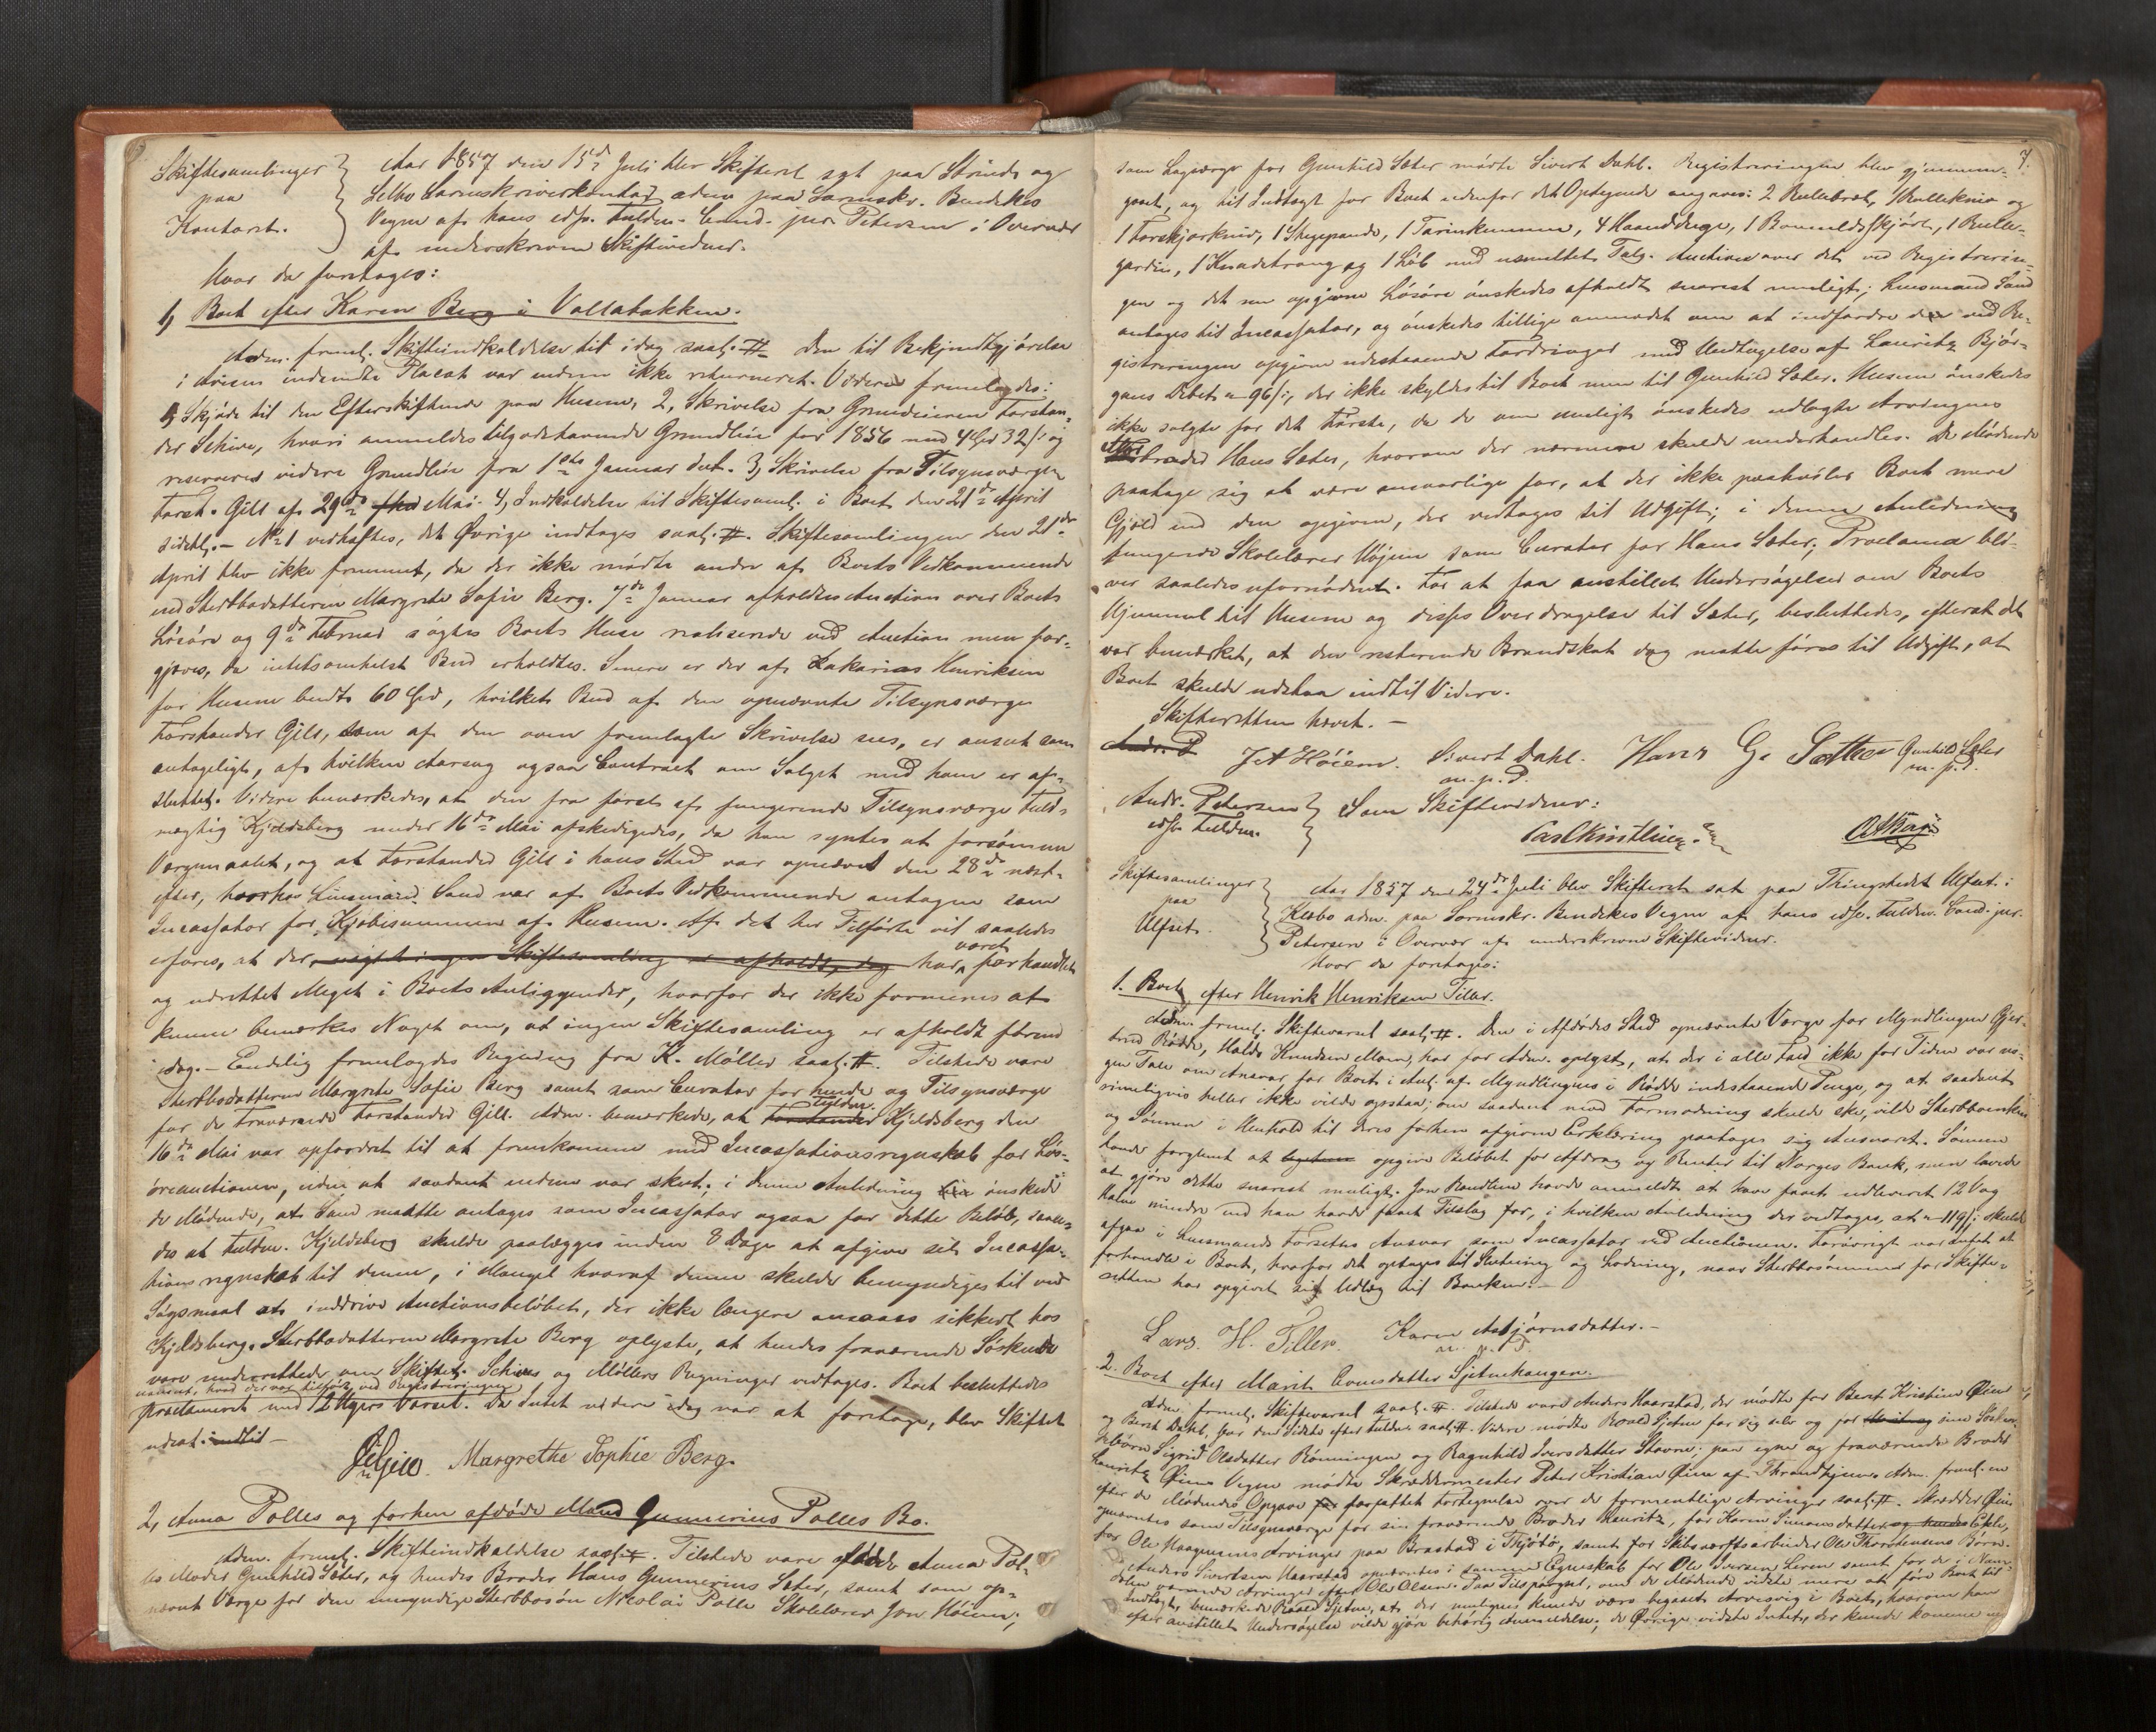 Skiftesamlinger
paa
Kontoret.
Aar 1857 den 15de Juli blev Skifteret sat paa Strinde og
Selbo Sorenskriverkontor adm. paa Sorenskr. Bendekes
Vegne af hans edsv. Fuldm. Cand. jur. Petersen i Overvær
af underskrevne Skiftevidner.
Hvor da foretoges:
1, Boet efter Karen Berg i Vollabakken.
Adm. freml. Skifteindkaldelse til idag saal. #. Den til Bekjendtgjørelse
i Avisen indsendte Placat var endnu ikke returneret. Videre fremlagdes:
1, Skjøde til den Efterskiftende paa Husene, 2, Skrivelse fra Grundeieren Forstan-
der Schive, hvori anmeldes tilgodehavende Grundleie for 1856 med 4 Spd 32 s og
reserveres videre Grundleie fra 1ste Januar d.A. 3, Skrivelse fra Tilsynsværgen
Forst. Gill af 29de Mai. 4, Indkaldelse til Skiftesaml. i Boet den 21de April
sidstl. – No 1 vedhæftes, det Øvrige indtages saal. #. Skiftesamlingen den 21de
April blev ikke fremmet, da der ikke mødte andre af Boets Vedkommende
end Sterbbodatteren Margrete Sofie Berg. 7de Januar afholdtes Auction over Boets
Løsøre og 9de Februar søgtes Boets Huse realiserede ved Auction men for-
gjæves, da intetsomhelst Bud erholdtes. Senere er der af Zakarias Henriksen
for Husene budt 60 Spd, hvilket Bud af den opnævnte Tilsynsværge
Forstander Gill, som af den oven fremlagte Skrivelse sees, er anseet som
antageligt, af hvilken Aarsag ogsaa Contract om Salget med ham er af-
sluttet. Videre bemærkedes, at den fra først af fungerende Tilsynsværge Fuld-
mægtig Kjeldsberg under 16de Mai afskedigedes, da han syntes at forsømme
Værgemaalet, og at Forstander Gill i hans Sted var opnævnt den 28de næst-
efter, hvorhos Lensmand Sand var af Boets Vedkommende antagen som
Incassator for Kjøbesummen af Husene. Af det her Tilførte vil saaledes
erfares, at der vistnok ingen Skiftesamling er afholdt, dog har været forhandlet
og udrettet Meget i Boets Anliggender, hvorfor der ikke formenes at
kunne bemærkes Noget om, at ingen Skiftesamling er afholdt førend
idag. – Endelig fremlagdes Regning fra K. Møller saal. #. Tilstede vare
Sterbbodatteren Margrete Sofie Berg samt som Curator for hende og Tilsynsværge
for de Fraværende Forstander Gill. Adm. bemærkede, at Forstander Fuldm. Kjeldsberg den
16de Mai var opfordret til at fremkomme med Incassationsregnskab for Løs-
øreauctionen, uden at saadant endnu var skeet; i denne Anledning ønskede
de Mødende, at Sand maatte antages som Incassator ogsaa for dette Beløb, saa-
de at Fuldm. Kjeldsberg skulde paalægges inden 8 Dage at afgive sit Incassa-
tions regnskab til denne, i Mangel hvoraf denne skulde bemyndiges til ved
Søgsmaal at inddrive Auctionsbeløbet, der ikke længere ansaaes sikkert hos
Kjeldsberg. Sterbbodatteren Margrete Berg oplyste, at hendes fraværende Søskende
vare underrettede om Skiftet. Schives og Møllers Regninger vedtages. Boet besluttedes
uanseet, hvad der var tilført ved Registreringen
proclameret med 12 Ugers Varsel. Da Intet videre idag var at foretage, blev Skiftet
udsat indtil –
Gill. Margrethe Sophie Berg.
2, Anna Polles og forhen afdøde Mand Gunnerius Polles Bo.
Adm. freml. Skifteindkaldelse saal. #. Tilstede vare afdøde Anna Pol-
les Moder Gunhild Sæter, og hendes Broder Hans Gunnerius Sæter, samt som op-
nævnt Værge for den umyndige Sterbbosøn Nicolai Polle Skolelærer Jon Høiem;
7.
som Lagværge for Gunhild Sæter mødte Sivert Dahl. Registreringen blev gjennem-
gaaet, og til Indtægt for Boet udenfor det Optegnede angaves: 2 Rullebræt, 1 Rullekniv og
1 Forskjærkniv, 1 Stegepande, 1 Tarinkumme, 4 Haandduge, 1 Bomuldsskjørt, 1 Rulle-
gardin, 1 Knadetraug og 1 Løb med usmeltet Talg. Auctionen over det ved Registrerin-
gen og det nu opgivne Løsøre ønskedes afholdt snarest muligt; Lensmand Sand
antages til Incassator, og ønskedes tillige anmodet om at indfordre de ved Re-
gistreringen opgivne udestaaende Fordringer med Undtagelse af Lauritz Bjør-
gans Debet a 96 s, der ikke skyldes til Boet men til Gunhild Sæter. Husene ønskedes
ikke solgte for det Første, da de om muligt ønskedes udlagte Arvingens
Morbroder Hans Sæter, hvorom der nærmere skulde underhandles. De Mødende
paatage sig at være ansvarlige for, at der ikke paahviler Boet mere
Gjæld end den opgivne, der vedtages til Udgift; i denne Anledning
fungerede Skolelærer Høiem som Curator for Hans Sæter; Proclama bli-
ver saaledes ufornødent. For at faa anstillet Undersøgelse om Boets
Hjemmel til Husene og disses Overdragelse til Sæter, besluttedes, efterat det
var bemærket, at den resterende Brandskat dog maatte føres til Udgift, at
Boet skulde udstaa indtil Videre.
Skifteretten hævet. –
Andr. P
J A Høiem. Sivert Dahl. Hans G. Sæther Gunhild Sæter
m. p. P. m. p. P.
Andr. Petersen
edsv. Fuldm.
Som Skiftevidner:
Skiftesamlinger
paa
Ulfset.
Aar 1857 den 24de Juli blev Skifteret sat paa Thingstedet Ulfset i
Klæbo adm. paa Sorenskr. Bendekes Vegne af hans edsv. Fuldm. Cand. jur.
Petersen i Overvær af underskrevne Skiftevidner.
Hvor da foretoges:
1. Boet efter Henrik Henriksen Tiller.
Adm. freml. Skiftevarsel saal. #. Den i Afdødes Sted opnævnte Værge for Myndlingen Gjer-
trud Rødde, Haldo Knudsen Moen, har for Adm. oplyst, at der i alle Fald ikke for Tiden var no-
gen Tale om Ansvar for Boet i Anl. af Myndlingens i Rødde indestaaende Penge, og at saadant
rimeligvis heller ikke vilde opstaa; om saadant mod Formodning skulde ske, vilde Sterbboenken
og Sønnen i Henhold til deres forhen afgivne Erklæring paatage sig Ansvaret. Sønnen
havde forglemt at opgive Beløbet for Afdrag og Renter til Norges Bank, men lovede
at gjøre dette snarest muligt. Jon Randlien havde anmeldt at have faaet udleveret 12 Vog
Halm mindre end han havde faaet Tilslag for, i hvilken Anledning der vedtages, at 119 s skulde
afgaa i Lensmands Forseths Ansvar som Incassator ved Auctionen. Forøvrigt var Intet at
forhandle i Boet, hvorfor det optages til Slutning og Lodning, naar Sterbbosønnen for Skifte-
retten har opgivet sit Udlæg til Banken. –
Lars. H. Tiller. Karen Asbjørnsdatter. –
m. p. P.
2. Boet efter Marit Arnesdatter Sjetnehaugen.
Adm. freml. Skiftevarsel saal. #. Tilstede vare Anders Haarstad, der mødte for Beret Kristine Øien
og Beret Dahl, for den Sidste efter Fuldm. saal. #. Videre mødte Roald Sjetne for sig selv og for sine Søsken-
debørn Sigrid Olsdatter Rønningen og Ragnhild Iversdatter Stavne; paa egne og fraværende Broder
Lauritz Øiens Vegne mødte Skræddermester Peter Kristian Øien af Throndhjem. Adm. freml. en
efter de Mødendes Opgave forfattet Fortegnelse over de formentlige Arvinger saal. #. Skrædder Øien
opnævntes som Tilsynsværge for sin fraværende Broder Lauritz, for Karen Simonsdatter og hendes Ekte,
for Ole Haagensens Arvinger paa Brastad i Tjøtø, samt for Skibsværftsarbeider Ole Thorstensens Børn.
Anders Sivertsen Haarstad opnævntes i samme Egenskab for Ole Iversen Leren samt for de i Nam-
dalen værende Arvinger efter Ole Olsen. Paa Tilspørgsel, om de Mødende vidste mere at føre Boet til
Indtægt, bemærkede Roald Sjetne, at der muligens kunde være begaaet Arvesvig i Boet, hvorom han
efter anstillet Undersøgelse vilde gjøre behørig Anmeldelse; de Øvrige vidste Intet, der kunde komme